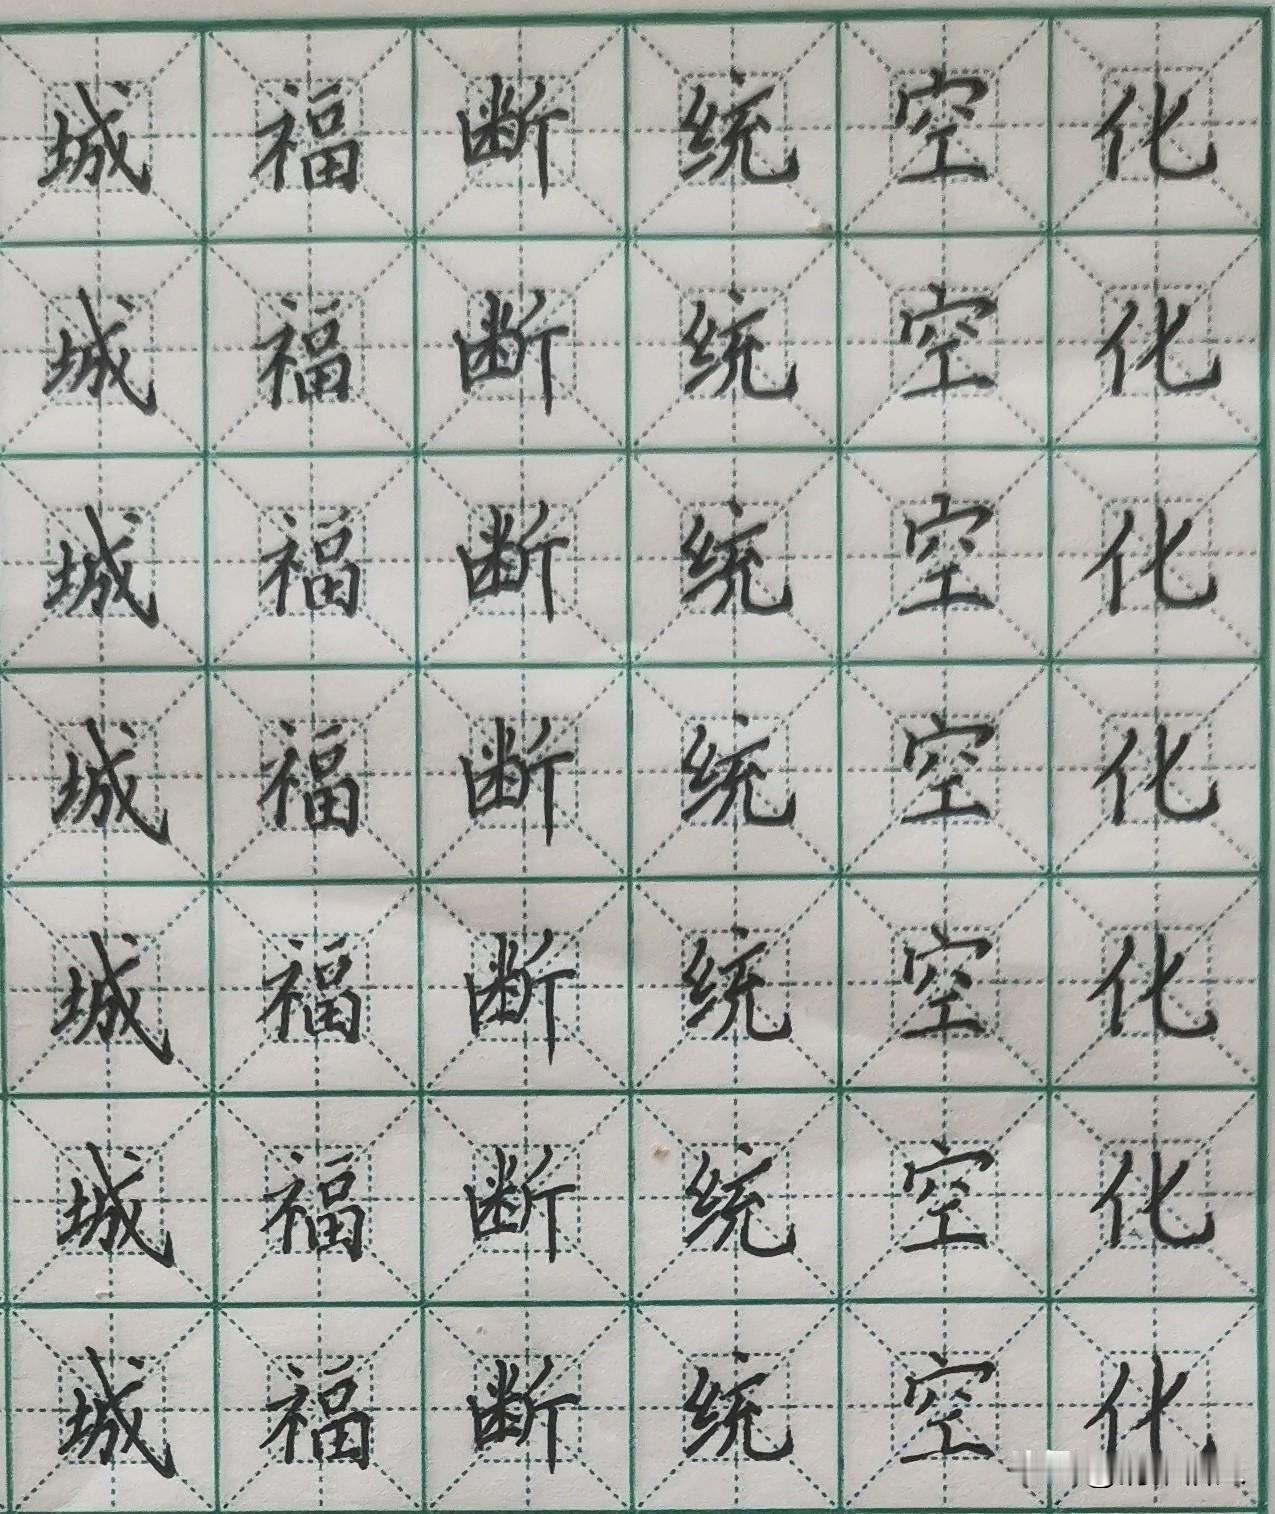 城福断统空化
城福断统空化
城福断统空化
城福断统空化
城福断统空化
城福断统空化
城福断统空化